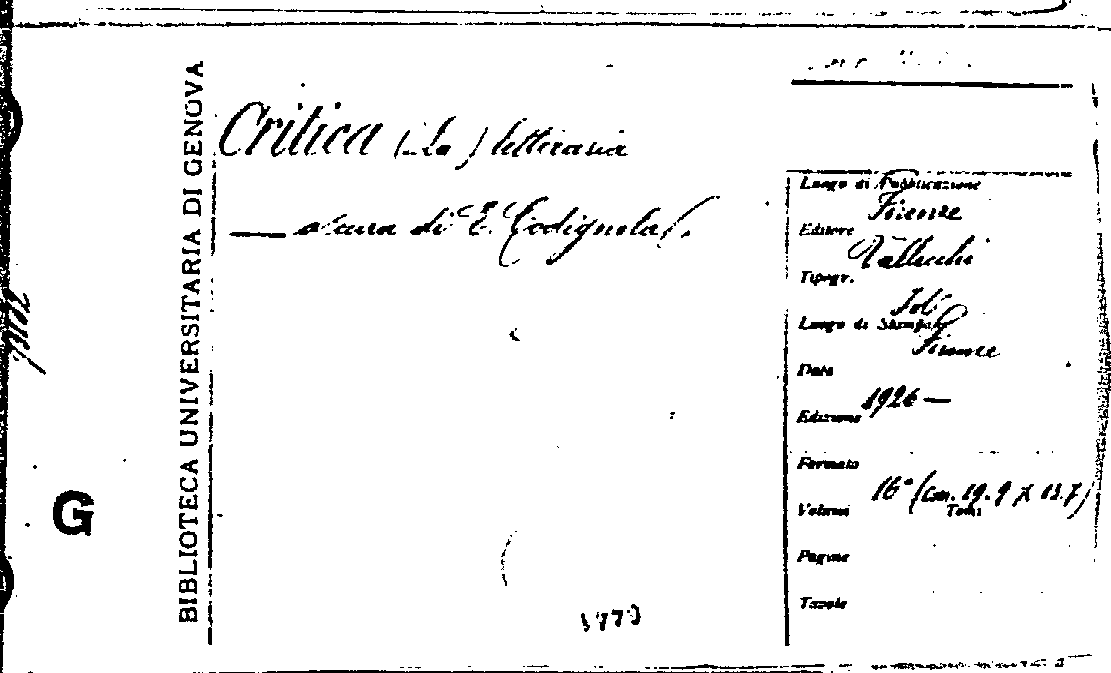 BIBLIOTECA UNIVERSITARIA DI GENOVA
G
Critica (La) letteraria
— a cura di E. Codignola/.
Luogo di Pubblicazione
Firenze
Editore
Vallecchi
Tipogr.
Luogo di Stampa
Firenze
Data
1926 —
Edizione
Formato
16° (cm. 19.9 X 13.7)
Volumi Tomi
Pagine
Tavole